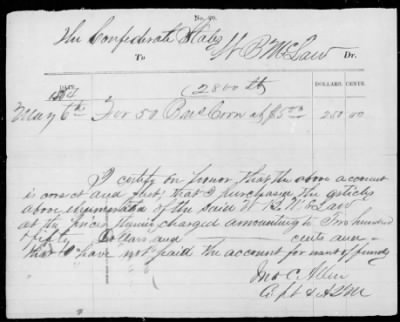 No. 40.
The Confederate States
To W B McLaw Dr.
DOLLARS. CENTS.
1864 (2800 lb)
May 6th For 50 Bus Corn at $5.00 250 00
I certify on honor that the above account
is correct and just; that I purchased the articles
above enumerated of the said W B McLaw
at the prices therein charged amounting to Two hundred
& fifty Dollars and cents and
that I have not paid the account for want of funds
Jno C. Allen
Capt & AQM